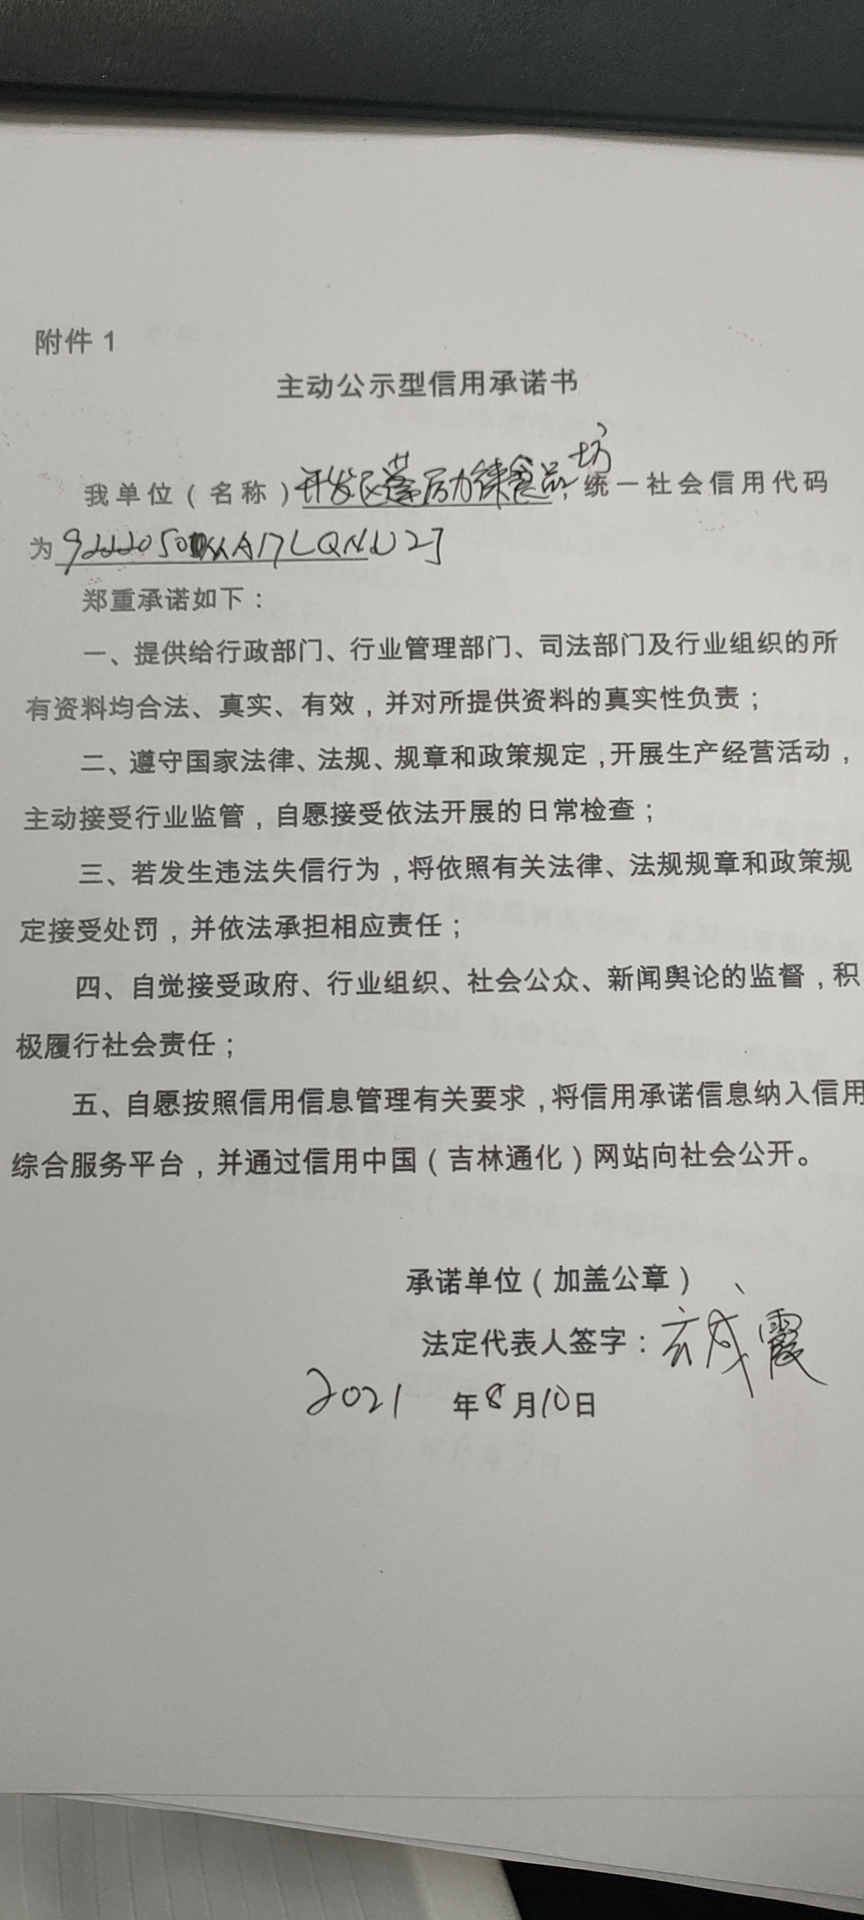 附件 1
主动公示型信用承诺书
我单位（名称）开发区 食品坊，统一社会信用代码
为
郑重承诺如下：
一、提供给行政部门、行业管理部门、司法部门及行业组织的所
有资料均合法、真实、有效，并对所提供资料的真实性负责；
二、遵守国家法律、法规、规章和政策规定，开展生产经营活动，
主动接受行业监管，自愿接受依法开展的日常检查；
三、若发生违法失信行为，将依照有关法律、法规规章和政策规
定接受处罚，并依法承担相应责任；
四、自觉接受政府、行业组织、社会公众、新闻舆论的监督，积
极履行社会责任；
五、自愿按照信用信息管理有关要求，将信用承诺信息纳入信用
综合服务平台，并通过信用中国（吉林通化）网站向社会公开。
承诺单位（加盖公章）
法定代表人签字：
2021 年8月10日